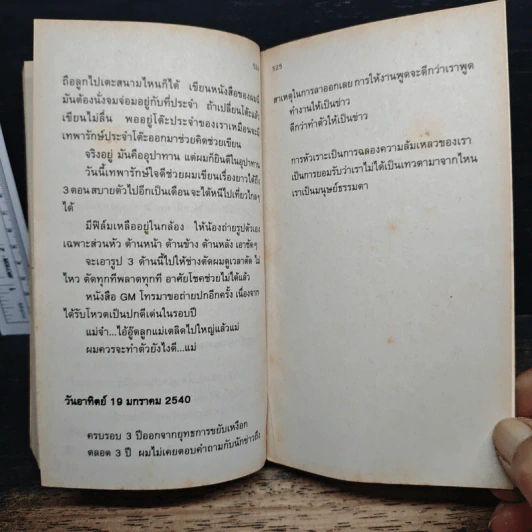 524
ถือลูกไปเตะสนามไหนก็ได้ เขียนหนังสือของผมนี่
มันต้องนั่งจมจ่อมอยู่กับที่ประจำ ถ้าเปลี่ยนโต๊ะแล้ว
เขียนไม่ลื่น พออยู่โต๊ะประจำของเราเหมือนจะมี
เทพารักษ์ประจำโต๊ะออกมาช่วยคิดช่วยเขียน
จริงอยู่ มันคืออุปาทาน แต่ผมก็ยินดีในอุปาทาน
วันนี้เทพารักษ์ใจดีช่วยผมเขียนเรื่องยาวได้ถึง
3 ตอน สบายตัวไปอีกเป็นเดือน จะได้หนีไปเที่ยวไกลๆ
ได้
มีฟิล์มเหลืออยู่ในกล้อง ให้น้องถ่ายรูปตัวเอง
เฉพาะส่วนหัว ด้านหน้า ด้านข้าง ด้านหลัง เอาชัดๆ
จะเอารูป 3 ด้านนี้ไปให้ช่างตัดผมดูเวลาตัด ไม่
ไหว ตัดทุกทีพลาดทุกที อาศัยโชคช่วยไม่ได้แล้ว
หนังสือ GM โทรมาขอถ่ายปกอีกครั้ง เนื่องจาก
ได้รับโหวตเป็นปกดีเด่นในรอบปี
แม่จ๋า...ไอ้อู๊ดลูกแม่เตลิดไปใหญ่แล้วแม่
ผมควรจะทำตัวยังไงดี...แม่
วันอาทิตย์ 19 มกราคม 2540
ครบรอบ 3 ปีออกจากยุทธการขยับเหงือก
ตลอด 3 ปี ผมไม่เคยตอบคำถามกับนักข่าวถึง
525
สาเหตุในการลาออกเลย การให้งานพูดจะดีกว่าเราพูด
ทำงานให้เป็นข่าว
ดีกว่าทำตัวให้เป็นข่าว
การหัวเราะเป็นการฉลองความล้มเหลวของเรา
เป็นการยอมรับว่าเราไม่ได้เป็นเทวดามาจากไหน
เราเป็นมนุษย์ธรรมดา